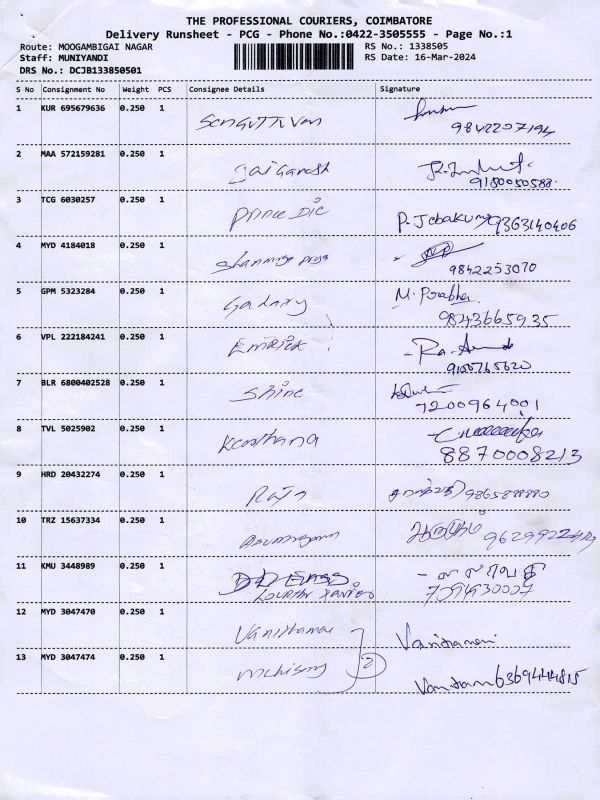 THE PROFESSIONAL COURIERS, COIMBATORE
Delivery Runsheet - PCG - Phone No.:0422-3505555 - Page No.:1
Route: MOOGAMBIGAI NAGAR RS No.: 1338505
Staff: MUNIYANDI RS Date: 16-Mar-2024
DRS No.: DCJB133850501
S No Consignment No Weight PCS Consignee Details Signature
1 KUR 695679636 0.250 1 Senguttuvan
9842207194
2 MAA 572159281 0.250 1 Jai Ganesh
9180050588
3 TCG 6030257 0.250 1 Prince Die P. Jebakumar 9363140406
4 MYD 4184018 0.250 1 Shanmuga priya
9842253070
5 GPM 5323284 0.250 1 Galaxy M. Prabha
9843665935
6 VPL 222184241 0.250 1 EMRICK
9100765620
7 BLR 6800402528 0.250 1 Shine
7200964001
8 TVL 5025902 0.250 1 Keerthana
8870008213
9 HRD 20432274 0.250 1 Raja
10 TRZ 15637334 0.250 1
11 KMU 3448989 0.250 1
12 MYD 3047470 0.250 1 Vanithamani Vanithamani
13 MYD 3047474 0.250 1 2
6369444815